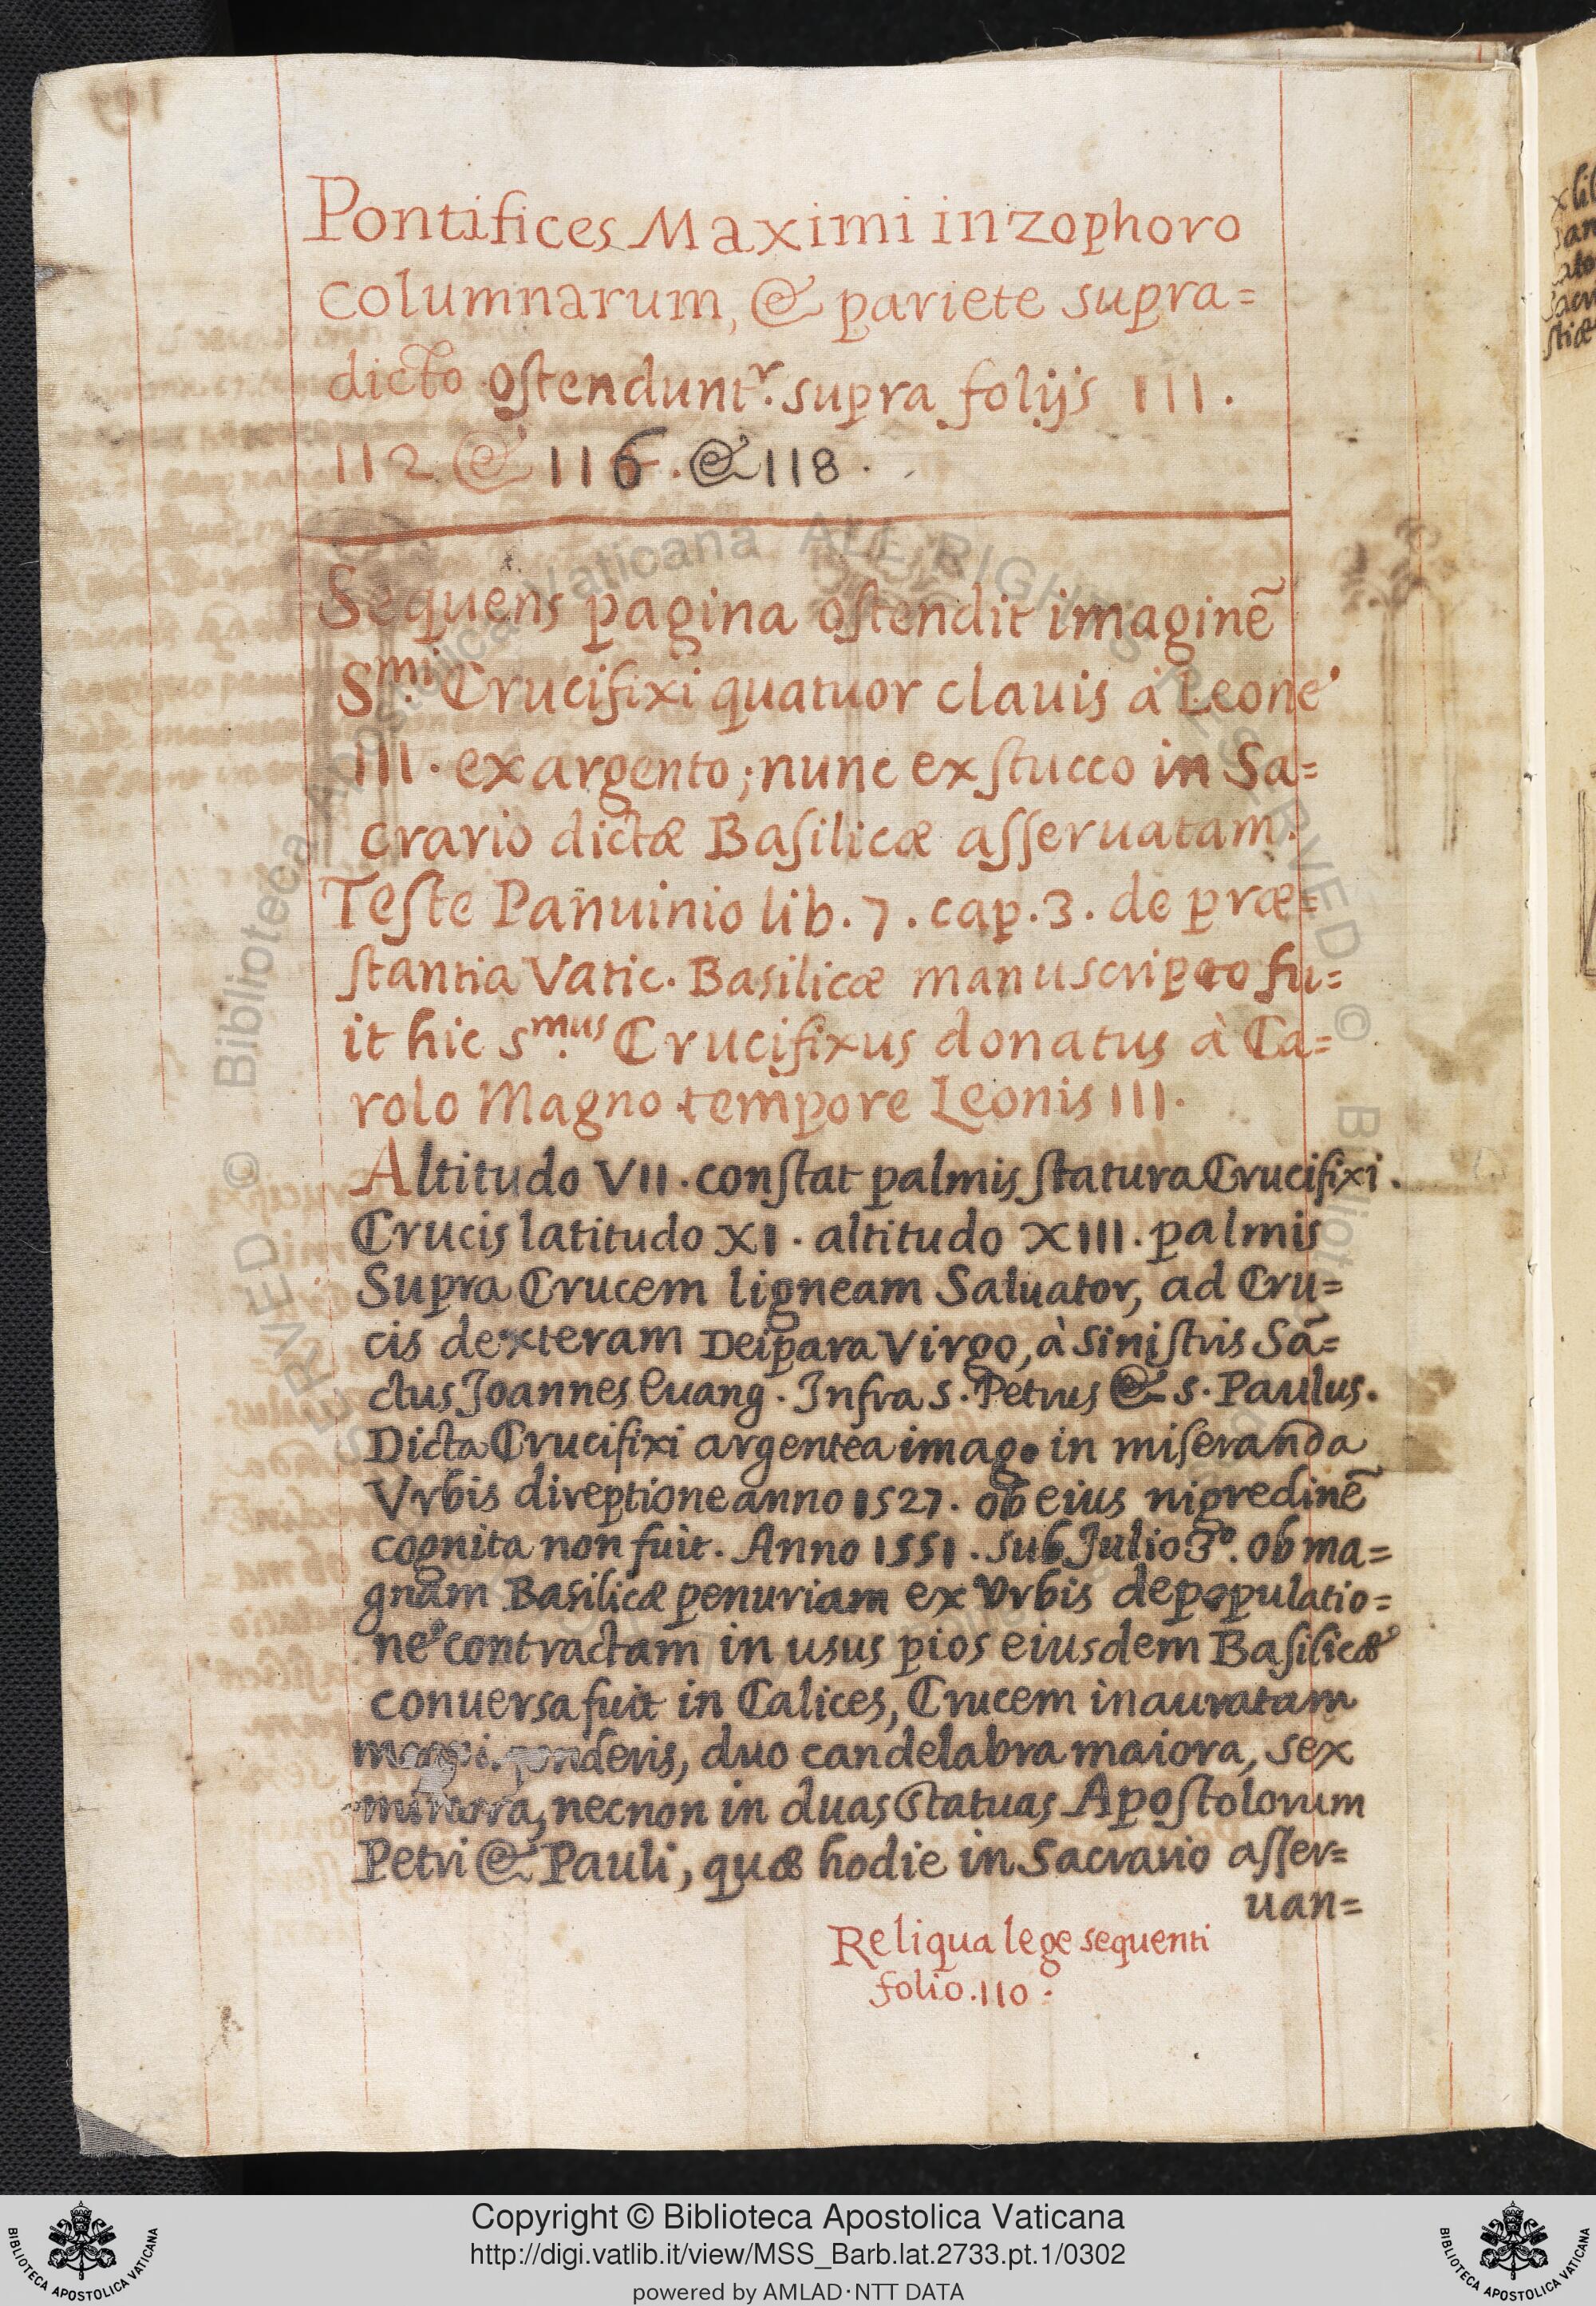 Pontifices Maximi in zophoro
columnarum, & pariete supra=
dicto ostendunt.r supra folijs 111.
112 & 116. & 118.
Sequens pagina ostendit imaginē
S.mi Crucifixi quatuor clauis à Leone
III. ex argento; nunc ex stucco in Sa=
crario dictæ Basilicæ asseruatam.
Teste Panuinio lib. 7. cap. 3. de præ=
stantia Vatic. Basilicæ manuscripto fu=
it hic s.mus Crucifixus donatus à Ca=
rolo Magno tempore Leonis III.
Altitudo VII. constat palmis statura Crucifixi.
Crucis latitudo XI. altitudo XIII. palmis
Supra Crucem ligneam Saluator, ad Cru=
cis dexteram Deipara Virgo, à sinistris Sā=
ctus Joannes Euang. Infra S. Petrus & S. Paulus.
Dicta Crucifixi argentea imago in miseranda
Vrbis direptione anno 1527. ob eius nigredinē
cognita non fuit. Anno 1551. sub Julio 3º. ob ma=
gnam Basilicæ penuriam ex Vrbis depopulatio=
ne contractam in usus pios eiusdem Basilicæ
conuersa fuit in Calices, Crucem inauratam
magni ponderis, duo candelabra maiora, sex
minora, necnon in duas Statuas Apostolorum
Petri & Pauli, quæ hodie in Sacrario asser=
uan=
Reliqua lege sequenti
folio. 110.
Copyright © Biblioteca Apostolica Vaticana
http://digi.vatlib.it/view/MSS_Barb.lat.2733.pt.1/0302
powered by AMLAD·NTT DATA
BIBLIOTECA APOSTOLICA VATICANA
BIBLIOTECA APOSTOLICA VATICANA